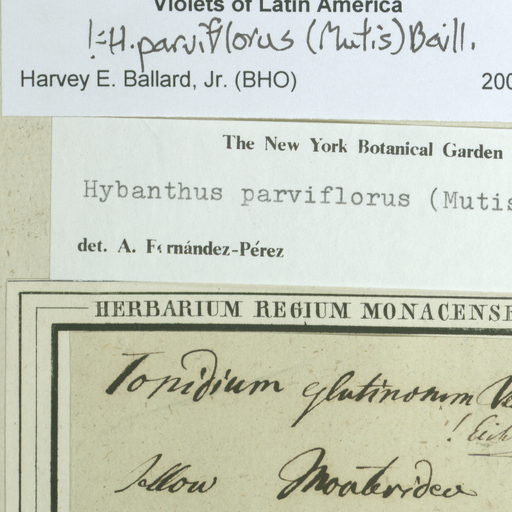 Violets of Latin America
!=H. parviflorus (Mutis) Baill.
Harvey E. Ballard, Jr. (BHO) 200
The New York Botanical Garden
Hybanthus parviflorus (Mutis
det. A. Fernández-Pérez
HERBARIUM REGIUM MONACENSE
Ionidium glutinosum Ve
! Eich
Sellow Montevideo